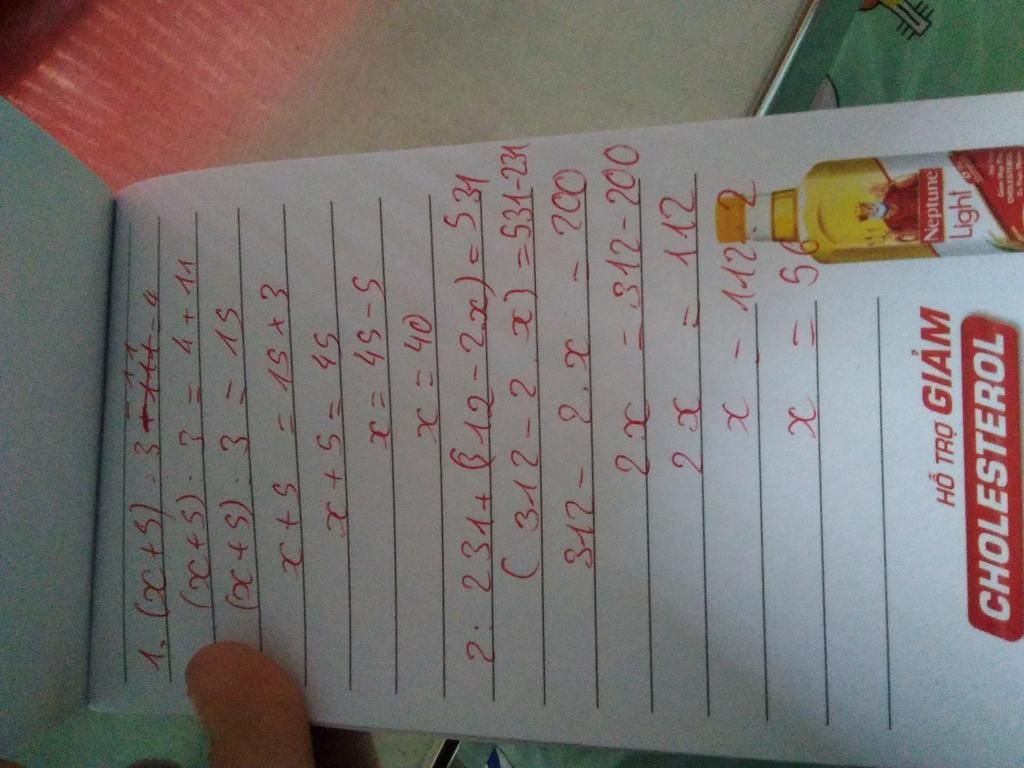 1, (x+5) : 3 - 11 = 4
(x+5) : 3 = 4 + 11
(x+5) : 3 = 15
x + 5 = 15 x 3
x + 5 = 45
x = 45 - 5
x = 40
2. 231 + (312 - 2x) = 531
( 312 - 2. x) = 531-231
312 - 2.x = 200
2x = 312-200
2x = 112
x = 112 : 2
x = 56
HỖ TRỢ GIẢM
CHOLESTEROL
Neptune
Light